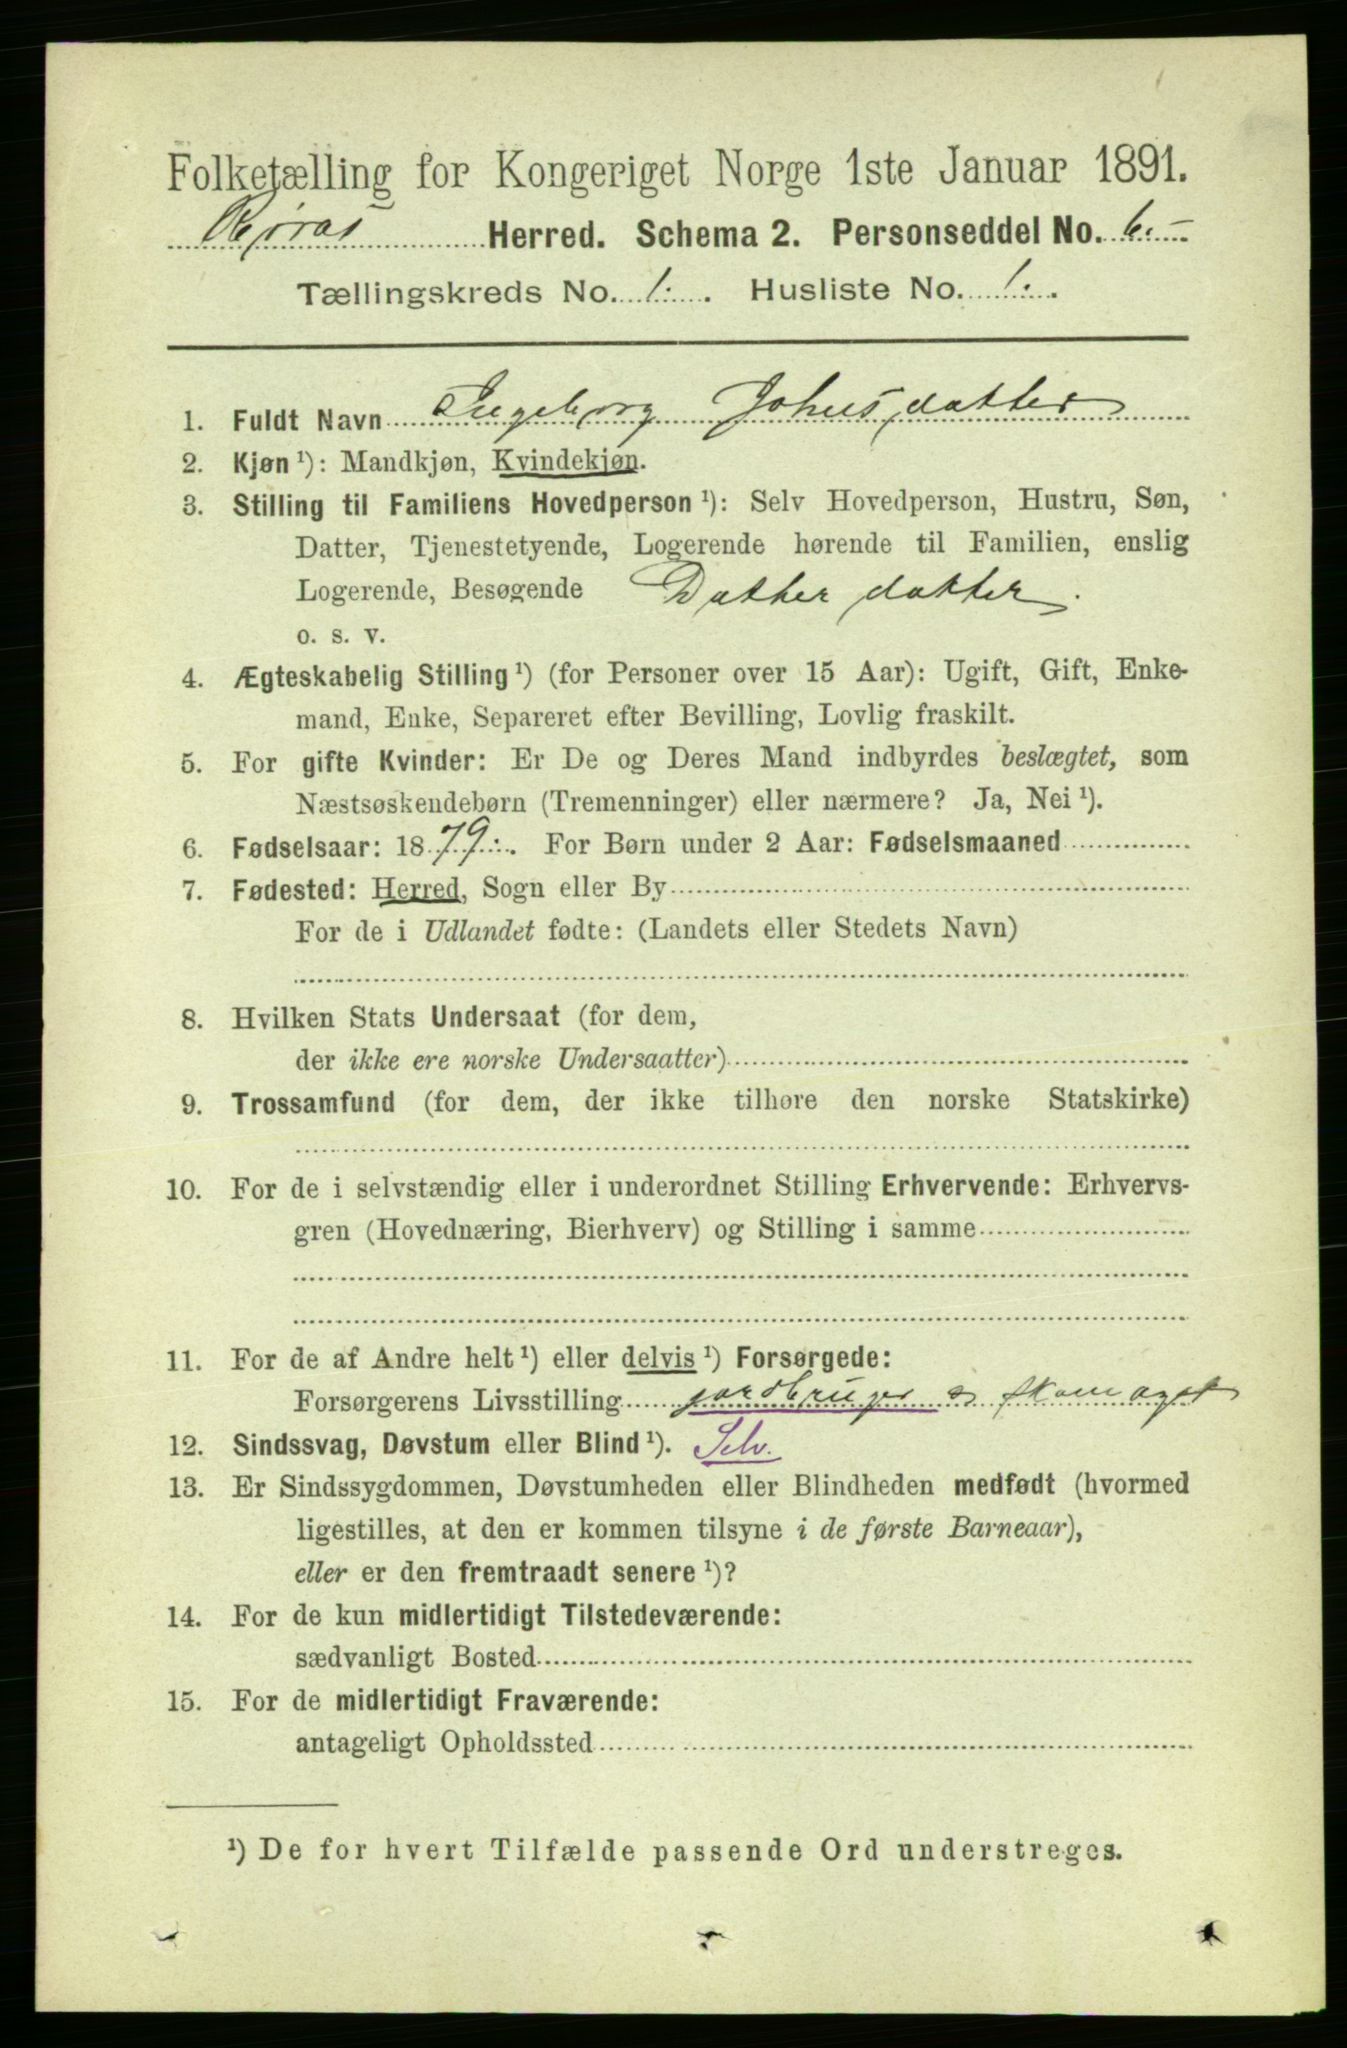 Folketælling for Kongeriget Norge 1ste Januar 1891.
Røraas Herred. Schema 2. Personseddel No. 6.
Tællingskreds No. 1. Husliste No. 1.
1. Fuldt Navn Ingeborg Johnsdatter
2. Kjøn ¹): Mandkjøn, Kvindekjøn.
3. Stilling til Familiens Hovedperson ¹): Selv Hovedperson, Hustru, Søn,
Datter, Tjenestetyende, Logerende hørende til Familien, enslig
Logerende, Besøgende Datter datter.
o. s. v.
4. Ægteskabelig Stilling ¹) (for Personer over 15 Aar): Ugift, Gift, Enke-
mand, Enke, Separeret efter Bevilling, Lovlig fraskilt.
5. For gifte Kvinder: Er De og Deres Mand indbyrdes beslægtet, som
Næstsøskendebørn (Tremenninger) eller nærmere? Ja, Nei ¹).
6. Fødselsaar: 1879. For Børn under 2 Aar: Fødselsmaaned
7. Fødested: Herred, Sogn eller By
For de i Udlandet fødte: (Landets eller Stedets Navn)
8. Hvilken Stats Undersaat (for dem,
der ikke ere norske Undersaatter)
9. Trossamfund (for dem, der ikke tilhøre den norske Statskirke)
10. For de i selvstændig eller i underordnet Stilling Erhvervende: Erhvervs-
gren (Hovednæring, Bierhverv) og Stilling i samme
11. For de af Andre helt ¹) eller delvis ¹) Forsørgede:
Forsørgerens Livsstilling jordbruger
12. Sindssvag, Døvstum eller Blind ¹). Selv.
13. Er Sindssygdommen, Døvstumheden eller Blindheden medfødt (hvormed
ligestilles, at den er kommen tilsyne i de første Barneaar),
eller er den fremtraadt senere ¹)?
14. For de kun midlertidigt Tilstedeværende:
sædvanligt Bosted
15. For de midlertidigt Fraværende:
antageligt Opholdssted
¹) De for hvert Tilfælde passende Ord understreges.